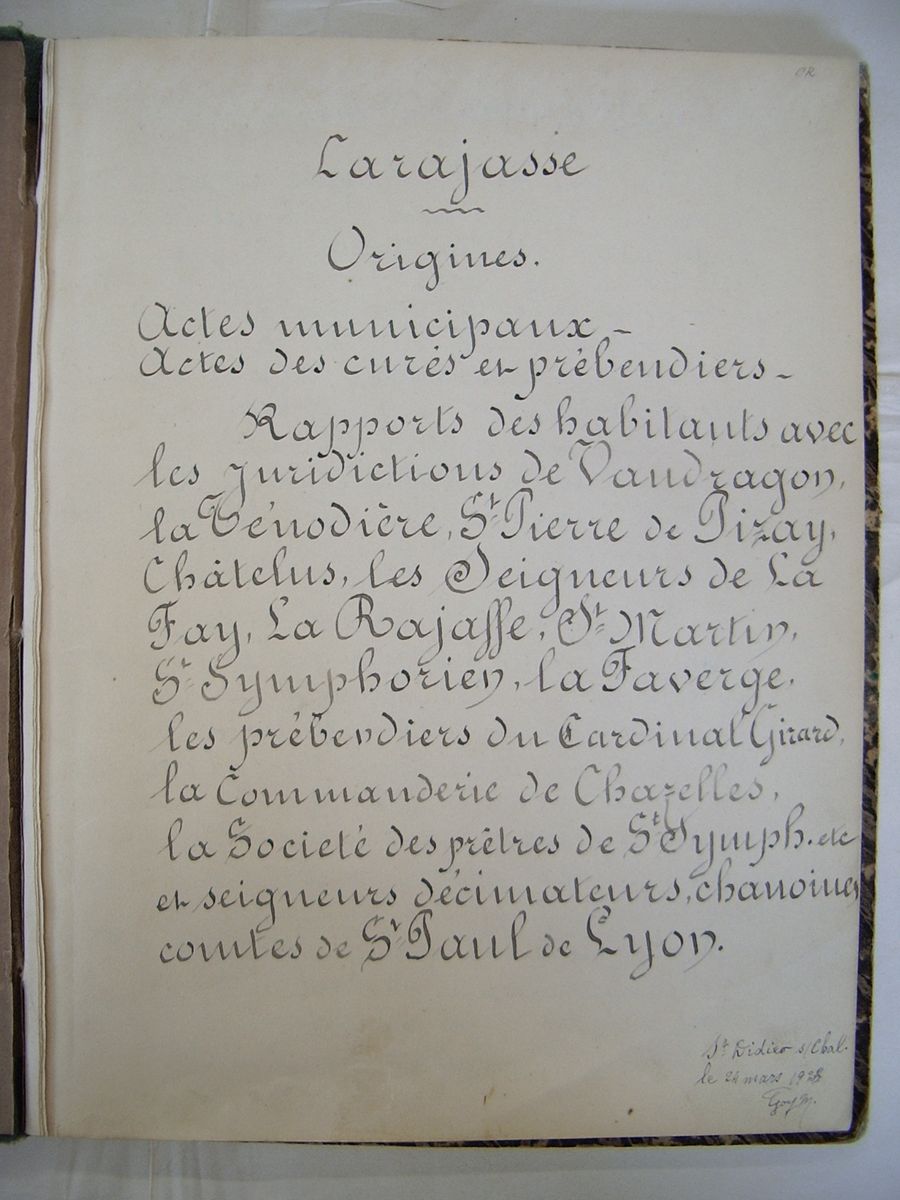 OR
Larajasse
Origines.
Actes municipaux -
Actes des curés et prébendiers -
Rapports des habitants avec
les juridictions de Vaudragon,
la Ténodière, St Pierre de Pizay,
Châtelus, les Seigneurs de La
Fay, La Rajasse, St Martin,
St Symphorien, la Faverge,
les prébendiers du Cardinal Girard,
la Commanderie de Chazelles,
la Societé des prêtres de St Symph. etc
et seigneurs décimateurs, chanoines
comtes de St Paul de Lyon.
St Didier s/Chal.
le 24 mars 1928
Goy M.